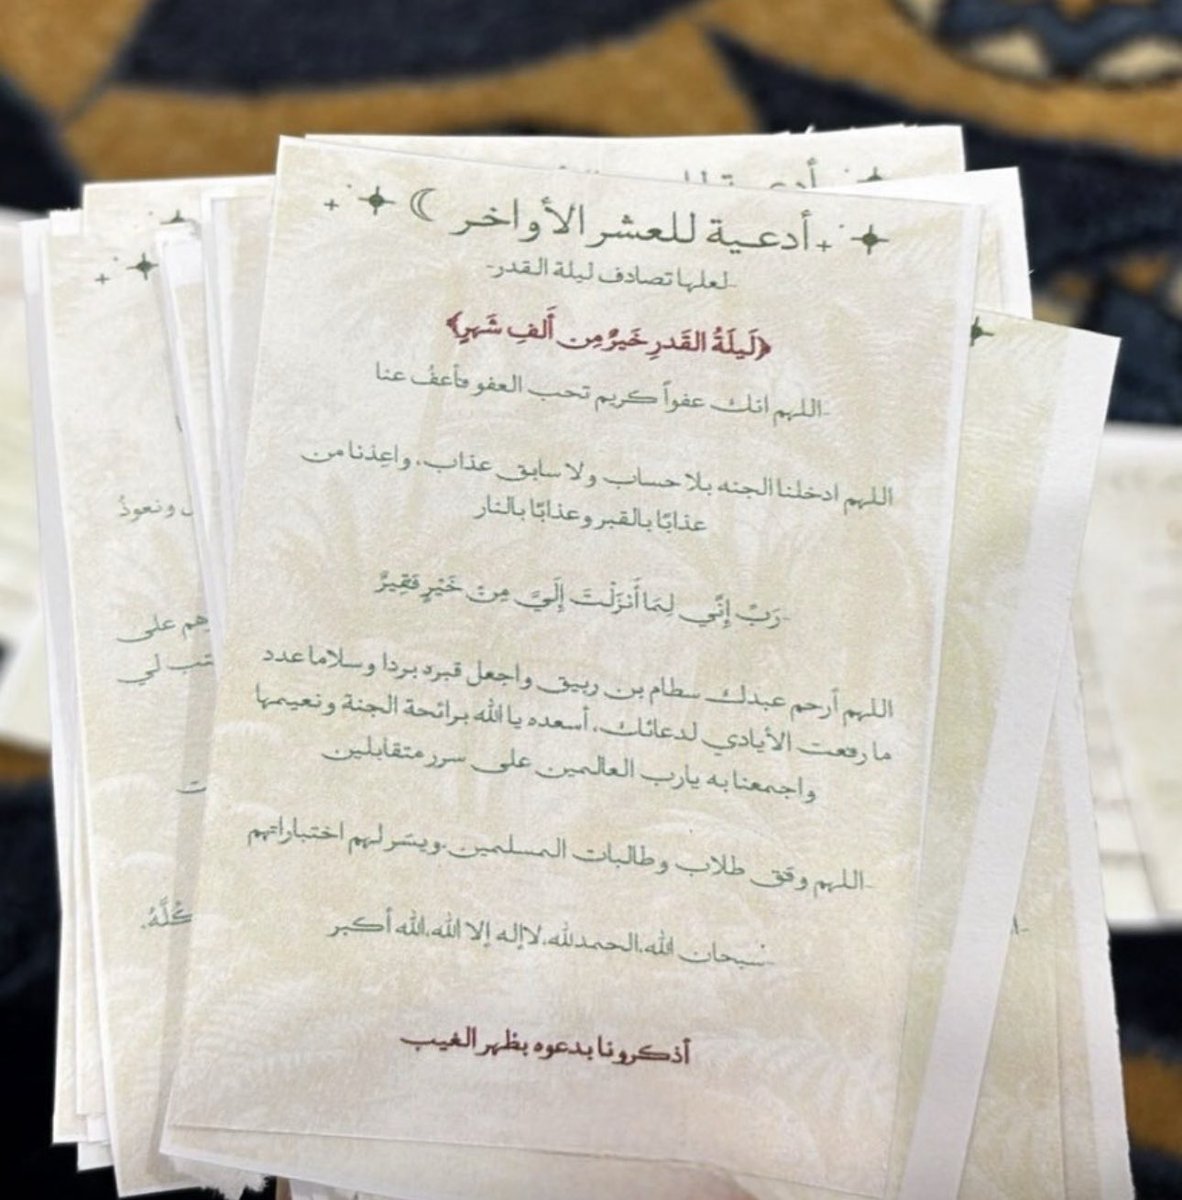 أدعية للعشر الأواخر
-لعلها تصادف ليلة القدر-
﴿لَيلَةُ القَدرِ خَيرٌ مِن أَلفِ شَهرٍ﴾
-اللهم انك عفواً كريم تحب العفو فأعفُ عنا
اللهم ادخلنا الجنه بلا حساب ولا سابق عذاب، واعِذنا من
عذابًا بالقبر وعذابًا بالنار
-رَبِّ إِنِّي لِمَا أَنزَلْتَ إِلَيَّ مِنْ خَيْرٍ فَقِيرٌ
اللهم أرحم عبدك سطام بن ربيق واجعل قبره بردا وسلاما عدد
ما رفعت الأيادي لدعائك، أسعده يا الله برائحة الجنة ونعيمها
واجمعنا به يارب العالمين على سرر متقابلين
-اللهم وفق طلاب وطالبات المسلمين،ويسَر لهم اختباراتهم
-سبحان الله،الحمدلله،لاإله إلا الله،الله أكبر
أذكرونا بدعوه بظهر الغيب
ونعوذُ
على
لي
كُلَّهُ،